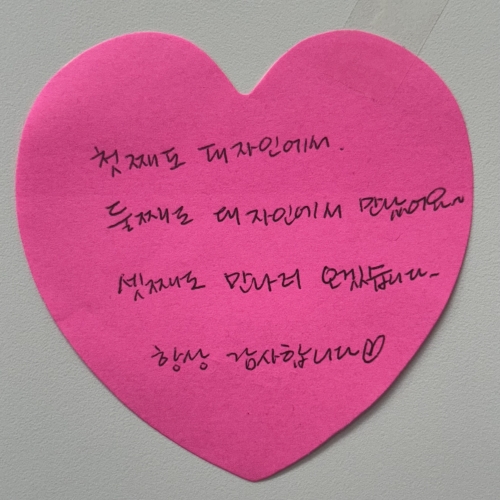 첫째도 대자인에서.
둘째도 대자인에서 만났어요~
셋째도 만나러 오겠습니다~
항상 감사합니다♡